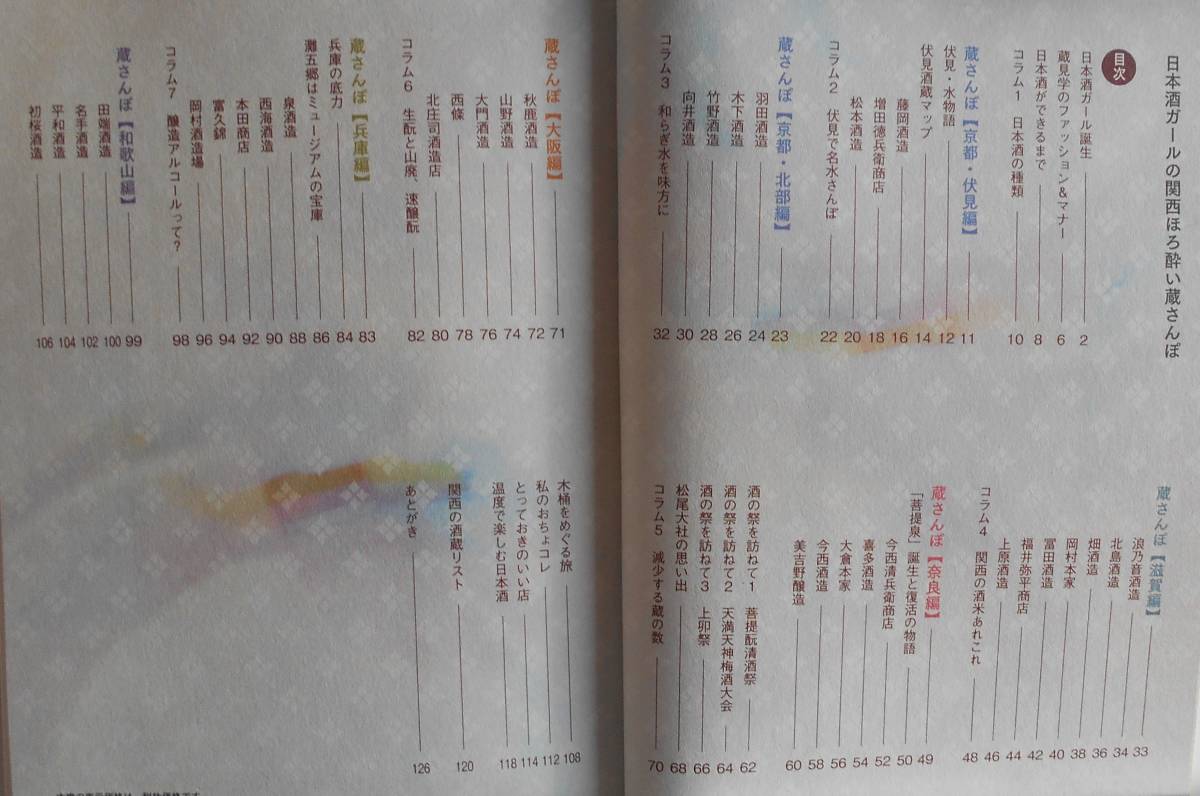 日本酒ガールの関西ほろ酔い蔵さんぽ
目次
日本酒ガール誕生 2
蔵見学のファッション&マナー 6
日本酒ができるまで 8
コラム1 日本酒の種類 10
蔵さんぽ【京都・伏見編】 11
伏見・水物語 12
伏見酒蔵マップ 14
藤岡酒造 16
増田德兵衞商店 18
松本酒造 20
コラム2 伏見で名水さんぽ 22
蔵さんぽ【京都・北部編】 23
羽田酒造 24
木下酒造 26
竹野酒造 28
向井酒造 30
コラム3 和らぎ水を味方に 32
蔵さんぽ【滋賀編】 33
浪乃音酒造 34
北島酒造 36
畑酒造 38
岡村本家 40
冨田酒造 42
福井弥平商店 44
上原酒造 46
コラム4 関西の酒米あれこれ 48
蔵さんぽ【奈良編】 49
「菩提泉」誕生と復活の物語 50
今西清兵衛商店 52
喜多酒造 54
大倉本家 56
今西酒造 58
美吉野醸造 60
酒の祭を訪ねて1 菩提酛清酒祭 62
酒の祭を訪ねて2 天満天神梅酒大会 64
酒の祭を訪ねて3 上卯祭 66
松尾大社の思い出 68
コラム5 減少する蔵の数 70
蔵さんぽ【大阪編】 71
秋鹿酒造 72
山野酒造 74
大門酒造 76
西條 78
北庄司酒造店 80
コラム6 生酛と山廃、速醸酛 82
蔵さんぽ【兵庫編】 83
兵庫の底力 84
灘五郷はミュージアムの宝庫 86
泉酒造 88
西海酒造 90
本田商店 92
富久錦 94
岡村酒造場 96
コラム7 醸造アルコールって? 98
蔵さんぽ【和歌山編】 99
田端酒造 100
名手酒造 102
平和酒造 104
初桜酒造 106
木桶をめぐる旅 108
私のおちょコレ 112
とっておきのいい店 114
温度で楽しむ日本酒 118
関西の酒蔵リスト 120
あとがき 126